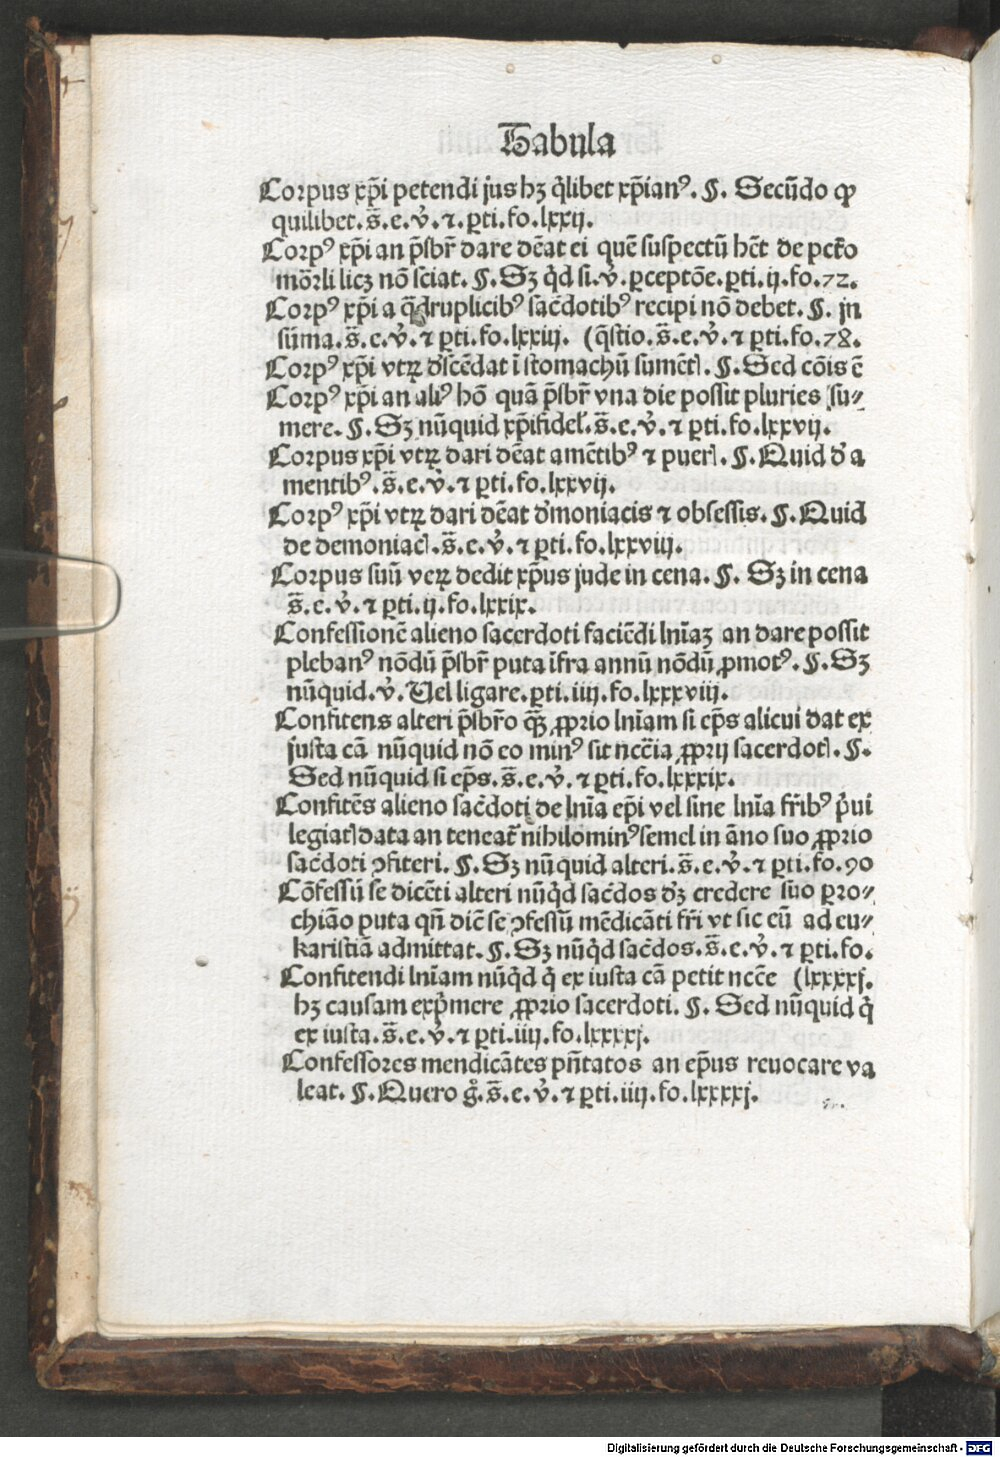 Tabula
Corpus xp̄i petendi jus hꝫ q̄libet xp̄ianꝰ. ¶. Secūdo ꝙ
quilibet. s̄. e. v̓. ⁊. ꝑti. fo. lxxij.
Corpꝰ xp̄i an p̄sbr̄ dare dēat ei quē suspectū hēt de pctō
mōrli licꝫ nō sciat. ¶. Sꝫ q̄d si. v̓. ꝑceptōe. ꝑti. ij. fo. 72.
Corpꝰ xp̄i a q̄druplicibꝰ sac̄dotibꝰ recipi nō debet. ¶. jn
sūma. s̄. e. v̓. ⁊ ꝑti. fo. lxxiij. (q̄stio. s̄. e. v̓. ⁊ ꝑti. fo. 78.
Corpꝰ xp̄i vtꝝ dscēdat ī stomachū sumētꝭ. ¶. Sed cōis ē
Corpꝰ xp̄i an aliꝰ hō quā p̄sbr̄ vna die possit pluries su⸗
mere. ¶. Sꝫ nūquid xp̄ifidel̓. s̄. e. v̓. ⁊ ꝑti. fo. lxxvij.
Corpus xp̄i vtꝝ dari dēat amētibꝰ ⁊ puerꝭ. ¶. Quid d̓ a
mentibꝰ. s̄. e. v̓. ⁊ ꝑti. fo. lxxvij.
Corpꝰ xp̄i vtꝝ dari dēat d̓moniacis ⁊ obsessis. ¶. Quid
de demoniacꝭ. s̄. e. v̓. ⁊ ꝑti. fo. lxxviij.
Corpus suū veꝝ dedit xp̄us jude in cena. ¶. Sꝫ in cena
s̄. e. v̓. ⁊ ꝑti. ij. fo. lxxix.
Confessionē alieno sacerdoti faciēdi lnīaꝫ an dare possit
plebanꝰ nōdū p̄sbr̄ puta īfra annū nōdū ꝓmotꝰ. ¶. Sꝫ
nūquid. v̓. Vel ligare. ꝑti. iiij. fo. lxxxviij.
Confitens alteri p̄sbr̄o qꝫ̄ ꝓprio lnīam si ep̄s alicui dat ex
justa cā nūquid nō eo minꝰ sit nccīa ꝓprij sacerdotꝭ. ¶.
Sed nūquid si ep̄s. s̄. e. v̓. ⁊ ꝑti. fo. lxxxix.
Confitēs alieno sac̄doti de lnīa ep̄i vel sine lnīa fr̄ibꝰ p̓ui
legiatꝭ data an teneat᷑ nihilominꝰ semel in āno suo ꝓprio
sac̄doti ꝯfiteri. ¶. Sꝫ nūquid alteri. s̄. e. v̓. ⁊ ꝑti. fo. 90
Cōfessū se dicēti alteri nūq̄d sac̄dos dꝫ credere suo ꝑro⸗
chiāo puta qn̄ dic̄ se ꝯfessū mēdicāti fr̄i vt sic eū ad eu⸗
karistiā admittat. ¶. Sꝫ nūq̄d sac̄dos. s̄. e. v̓. ⁊ ꝑti. fo.
Confitendi lnīam nūq̄d q̓ ex iusta cā petit nccē (lxxxxj.
hꝫ causam exp̓mere ꝓprio sacerdoti. ¶. Sed nūquid q̓
ex iusta. s̄. e. v̓. ⁊ ꝑti. iiij. fo. lxxxxj.
Confessores mendicātes pn̄tatos an ep̄us reuocare va
leat. ¶. Quero g̊. s̄. e. v̓. ⁊ ꝑti. iiij. fo. lxxxxj.
Digitalisierung gefördert durch die Deutsche Forschungsgemeinschaft - DFG